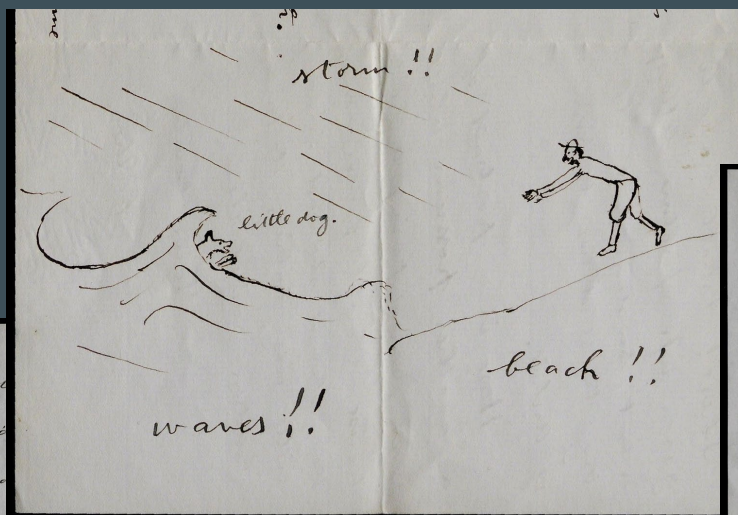 storm !!
little dog.
beach !!
waves !!